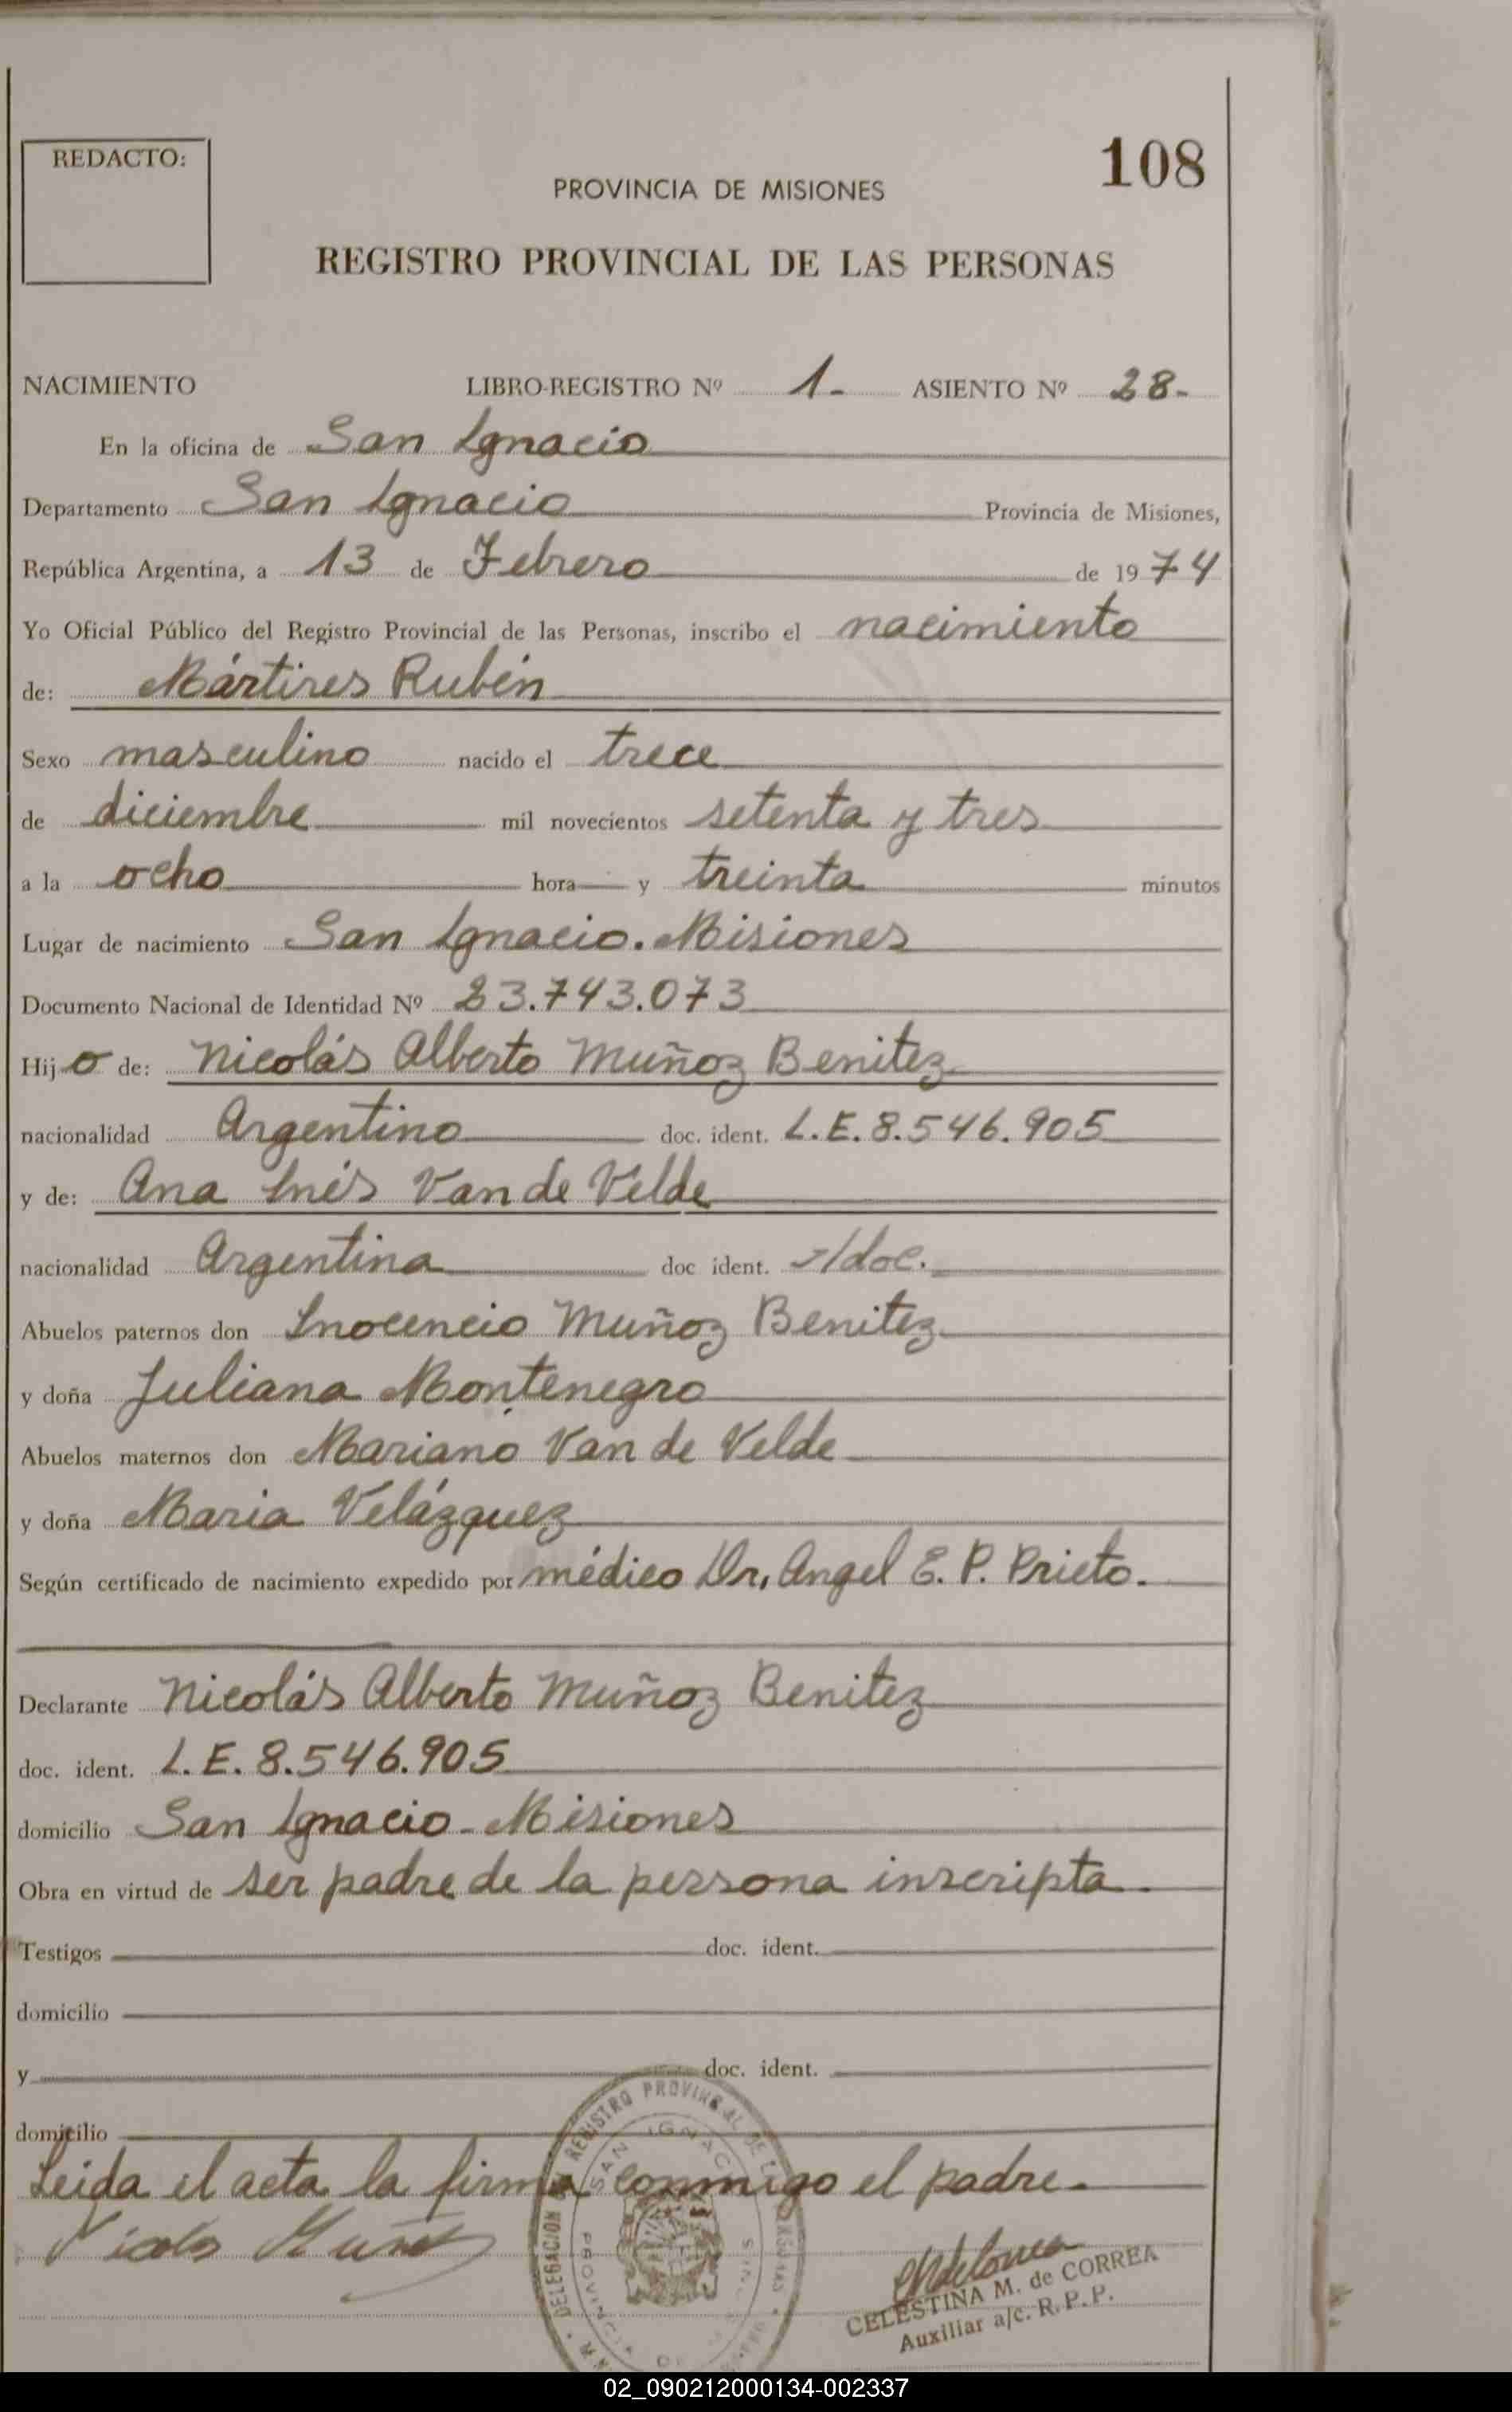 REDACTO:
108
PROVINCIA DE MISIONES
REGISTRO PROVINCIAL DE LAS PERSONAS
NACIMIENTO LIBRO-REGISTRO Nº 1- ASIENTO Nº 28-
En la oficina de San Ignacio
Departamento San Ignacio Provincia de Misiones,
República Argentina, a 13 de Febrero de 1974
Yo Oficial Público del Registro Provincial de las Personas, inscribo el nacimiento
de: Mártires Rubén
Sexo masculino nacido el trece
de diciembre mil novecientos setenta y tres
a la ocho hora y treinta minutos
Lugar de nacimiento San Ignacio. Misiones
Documento Nacional de Identidad Nº 23.743.073
Hijo de: Nicolás Alberto Muñoz Benitez
nacionalidad Argentino doc. ident. L.E. 8.546.905
y de: Ana Inés Van de Velde
nacionalidad Argentina doc ident. s/doc.
Abuelos paternos don Inocencio Muñoz Benitez
y doña Juliana Montenegro
Abuelos maternos don Mariano Van de Velde
y doña Maria Velázquez
Según certificado de nacimiento expedido por médico Dr. Angel E. P. Prieto.
Declarante Nicolás Alberto Muñoz Benitez
doc. ident. L.E. 8.546.905
domicilio San Ignacio - Misiones
Obra en virtud de ser padre de la persona inscripta.
Testigos doc. ident.
domicilio
y doc. ident.
domicilio
Leida el acta la firma conmigo el padre.
Nicolas Muñoz
CELESTINA M. de CORREA
Auxiliar a/c. R. P. P.
DELEGACION REGISTRO PROVINCIAL DE LAS PERSONAS
SAN IGNACIO
02_090212000134-002337